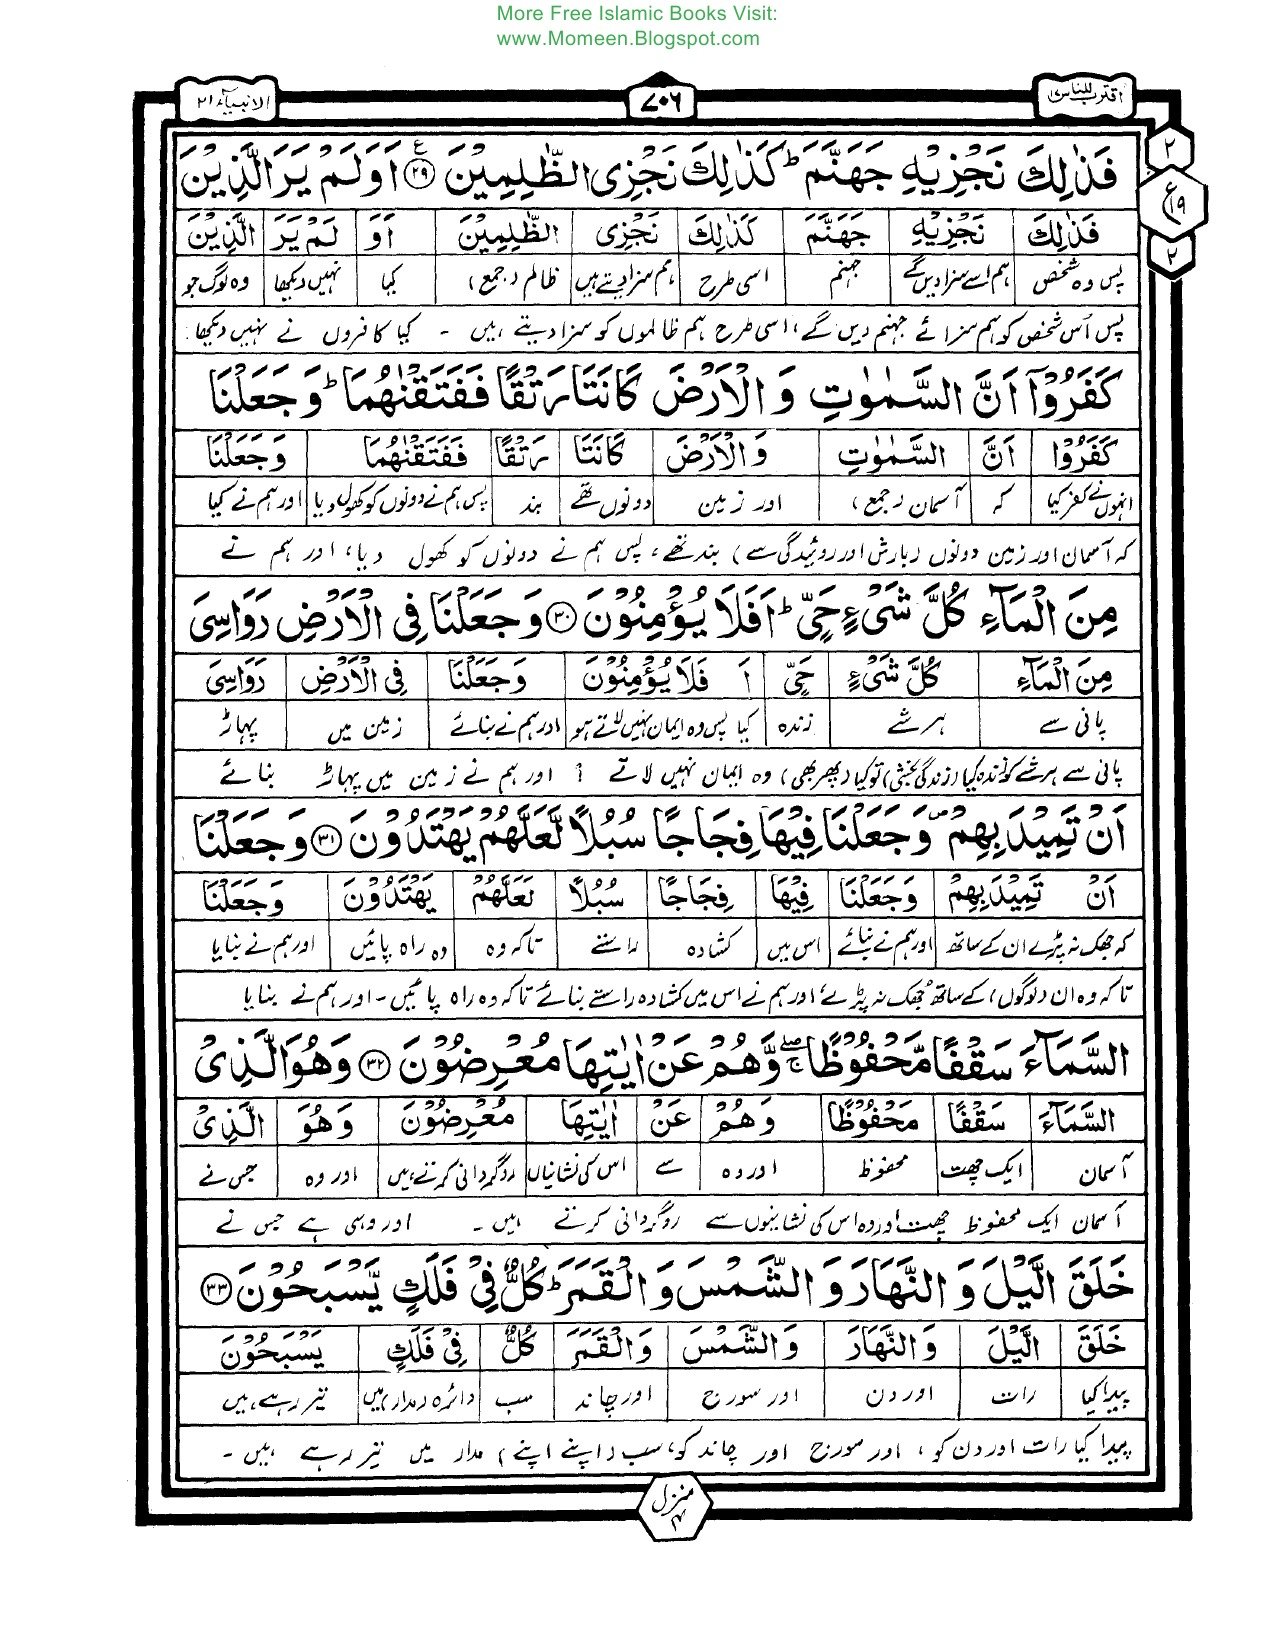 More Free Islamic Books Visit:
www.Momeen.Blogspot.com
اقترب للناس ۱۷
۷۰۶
الانبیآء ۲۱
۲
ع
۱۹
۲
فَذٰلِكَ نَجْزِيْهِ جَهَنَّمَ ؕ كَذٰلِكَ نَجْزِى الظّٰلِمِيْنَ ﴿۲۹﴾ اَوَلَمْ يَرَ الَّذِيْنَ
فَذٰلِكَ نَجْزِيْهِ جَهَنَّمَ كَذٰلِكَ نَجْزِى الظّٰلِمِيْنَ اَوَ لَمْ يَرَ الَّذِيْنَ
پس وہ شخص ہم اسے سزا دیں گے جہنم اسی طرح ہم سزا دیتے ہیں ظالم (جمع) کیا نہیں دیکھا وہ لوگ جو
پس اُس شخص کو ہم سزائے جہنم دیں گے، اسی طرح ہم ظالموں کو سزا دیتے ہیں ۔ کیا کافروں نے نہیں دیکھا
كَفَرُوْۤا اَنَّ السَّمٰوٰتِ وَ الْاَرْضَ كَانَتَا رَتْقًا فَفَتَقْنٰهُمَا ؕ وَ جَعَلْنَا
كَفَرُوْا اَنَّ السَّمٰوٰتِ وَ الْاَرْضَ كَانَتَا رَتْقًا فَفَتَقْنٰهُمَا وَ جَعَلْنَا
انہوں نے کفر کیا کہ آسمان (جمع) اور زمین دونوں تھے بند پس ہم نے دونوں کو کھول دیا اور ہم نے کیا
کہ آسمان اور زمین دونوں (بارش اور روئیدگی سے) بند تھے، پس ہم نے دونوں کو کھول دیا، اور ہم نے
مِنَ الْمَآءِ كُلَّ شَىْءٍ حَىٍّ ؕ اَفَلَا يُؤْمِنُوْنَ ﴿۳۰﴾ وَ جَعَلْنَا فِى الْاَرْضِ رَوَاسِىَ
مِنَ الْمَآءِ كُلَّ شَىْءٍ حَىٍّ اَ فَلَا يُؤْمِنُوْنَ وَ جَعَلْنَا فِى الْاَرْضِ رَوَاسِىَ
پانی سے ہر شے زندہ کیا پس وہ ایمان نہیں لاتے ہو اور ہم نے بنائے زمین میں پہاڑ
پانی سے ہر شے کو زندہ کیا (زندگی بخشی) تو کیا (پھر بھی) وہ ایمان نہیں لاتے ؟ اور ہم نے زمین میں پہاڑ بنائے
اَنْ تَمِيْدَ بِهِمْ ۪ وَ جَعَلْنَا فِيْهَا فِجَاجًا سُبُلًا لَّعَلَّهُمْ يَهْتَدُوْنَ ﴿۳۱﴾ وَ جَعَلْنَا
اَنْ تَمِيْدَ بِهِمْ وَ جَعَلْنَا فِيْهَا فِجَاجًا سُبُلًا لَعَلَّهُمْ يَهْتَدُوْنَ وَ جَعَلْنَا
کہ جھک نہ پڑے ان کے ساتھ اور ہم نے بنائے اس میں کشادہ راستے تاکہ وہ وہ راہ پائیں اور ہم نے بنایا
تاکہ وہ ان (لوگوں) کے ساتھ جھک نہ پڑے، اور ہم نے اس میں کشادہ راستے بنائے تاکہ وہ راہ پائیں ۔ اور ہم نے بنایا
السَّمَآءَ سَقْفًا مَّحْفُوْظًا ۚۖ وَّ هُمْ عَنْ اٰيٰتِهَا مُعْرِضُوْنَ ﴿۳۲﴾ وَ هُوَ الَّذِىْ
السَّمَآءَ سَقْفًا مَحْفُوْظًا وَ هُمْ عَنْ اٰيٰتِهَا مُعْرِضُوْنَ وَ هُوَ الَّذِىْ
آسمان ایک چھت محفوظ اور وہ سے اس کی نشانیاں روگردانی کرتے ہیں اور وہ جس نے
آسمان ایک محفوظ چھت اور وہ اس کی نشانیوں سے روگردانی کرتے ہیں ۔ اور وہی ہے جس نے
خَلَقَ الَّيْلَ وَ النَّهَارَ وَ الشَّمْسَ وَ الْقَمَرَ ؕ كُلٌّ فِىْ فَلَكٍ يَّسْبَحُوْنَ ﴿۳۳﴾
خَلَقَ الَّيْلَ وَ النَّهَارَ وَ الشَّمْسَ وَ الْقَمَرَ كُلٌّ فِىْ فَلَكٍ يَسْبَحُوْنَ
پیدا کیا رات اور دن اور سورج اور چاند سب دائرہ (مدار) میں تیر رہے ہیں
پیدا کیا رات اور دن کو ، اور سورج اور چاند کو، سب (اپنے اپنے) مدار میں تیر رہے ہیں ۔
منزل
۴